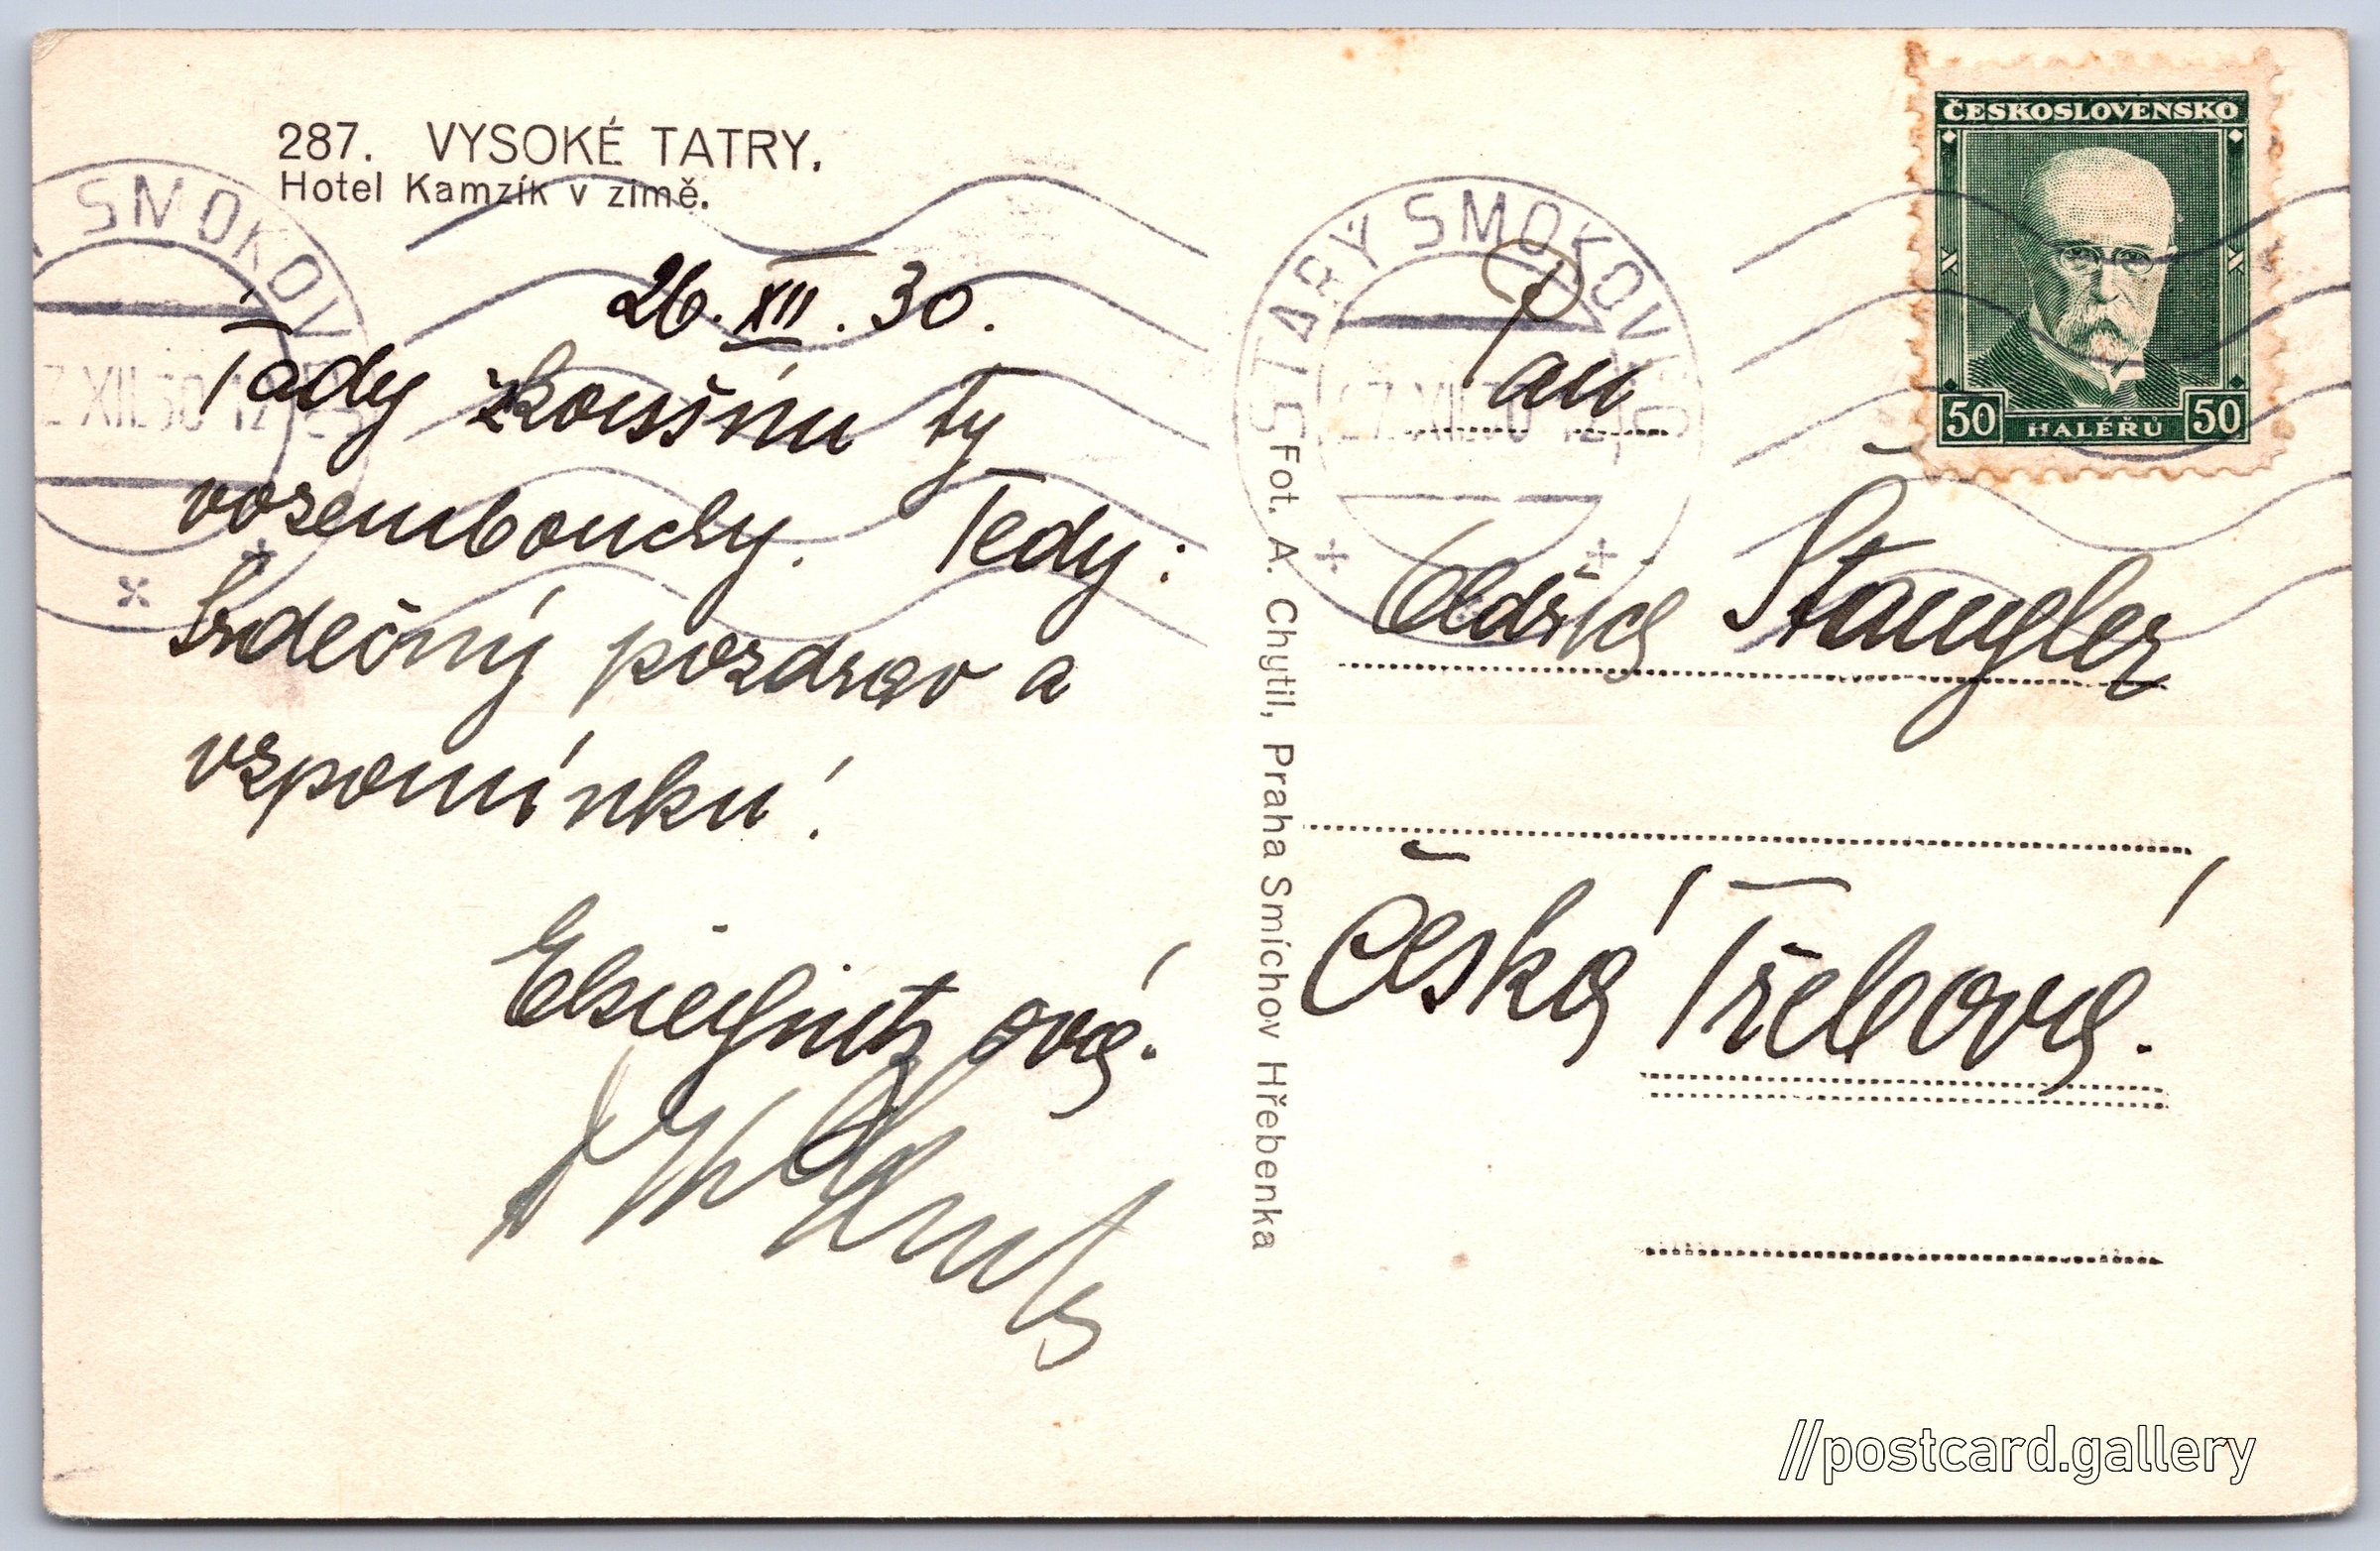 287. VYSOKÉ TATRY.
Hotel Kamzík v zimě.
26. XII. 30.
Tady zkouším ty
vozembouchy. Tedy:
Srdečný pozdrav a
vzpomínku!
ová.
Fot. A. Chytil, Praha Smíchov Hřebenka
SMOKOV
XII.30 12
STARÝ SMOKOVEC
27.XII.30 12
ČESKOSLOVENSKO
50 HALÉŘŮ 50
Pan
Oldřich Štangler
Česká Třebová.
//postcard.gallery